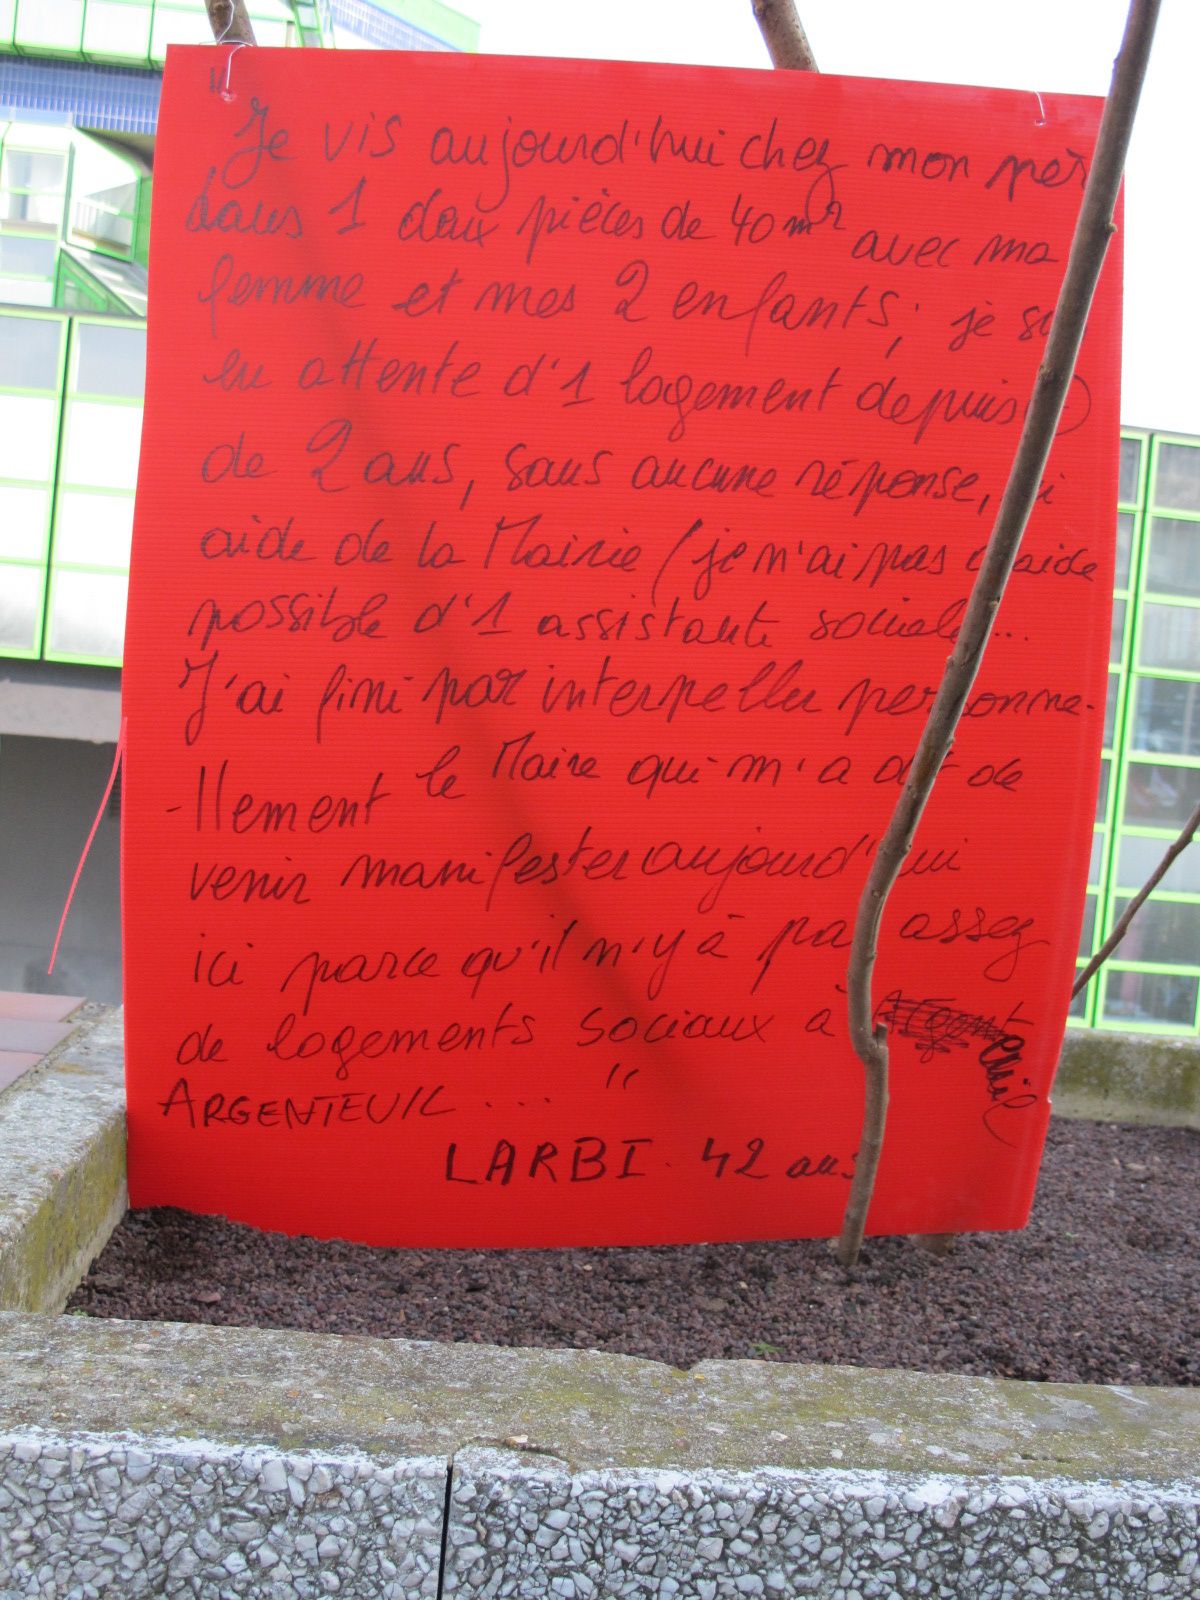 "Je vis aujourd'hui chez mon pèr
dans 1 deux pièces de 40 m² avec ma
femme et mes 2 enfants; je su
en attente d'1 logement depuis
de 2 ans, sans aucune réponse, ni
aide de la Mairie (je n'ai pas d'aide
possible d'1 assistante sociale...
J'ai fini par interpeller personne-
-llement le Maire qui m'a dit de
venir manifester aujourd'hui
ici parce qu'il n'y à pas assez
de logements sociaux à
ARGENTEUIL ... "
LARBI. 42 ans